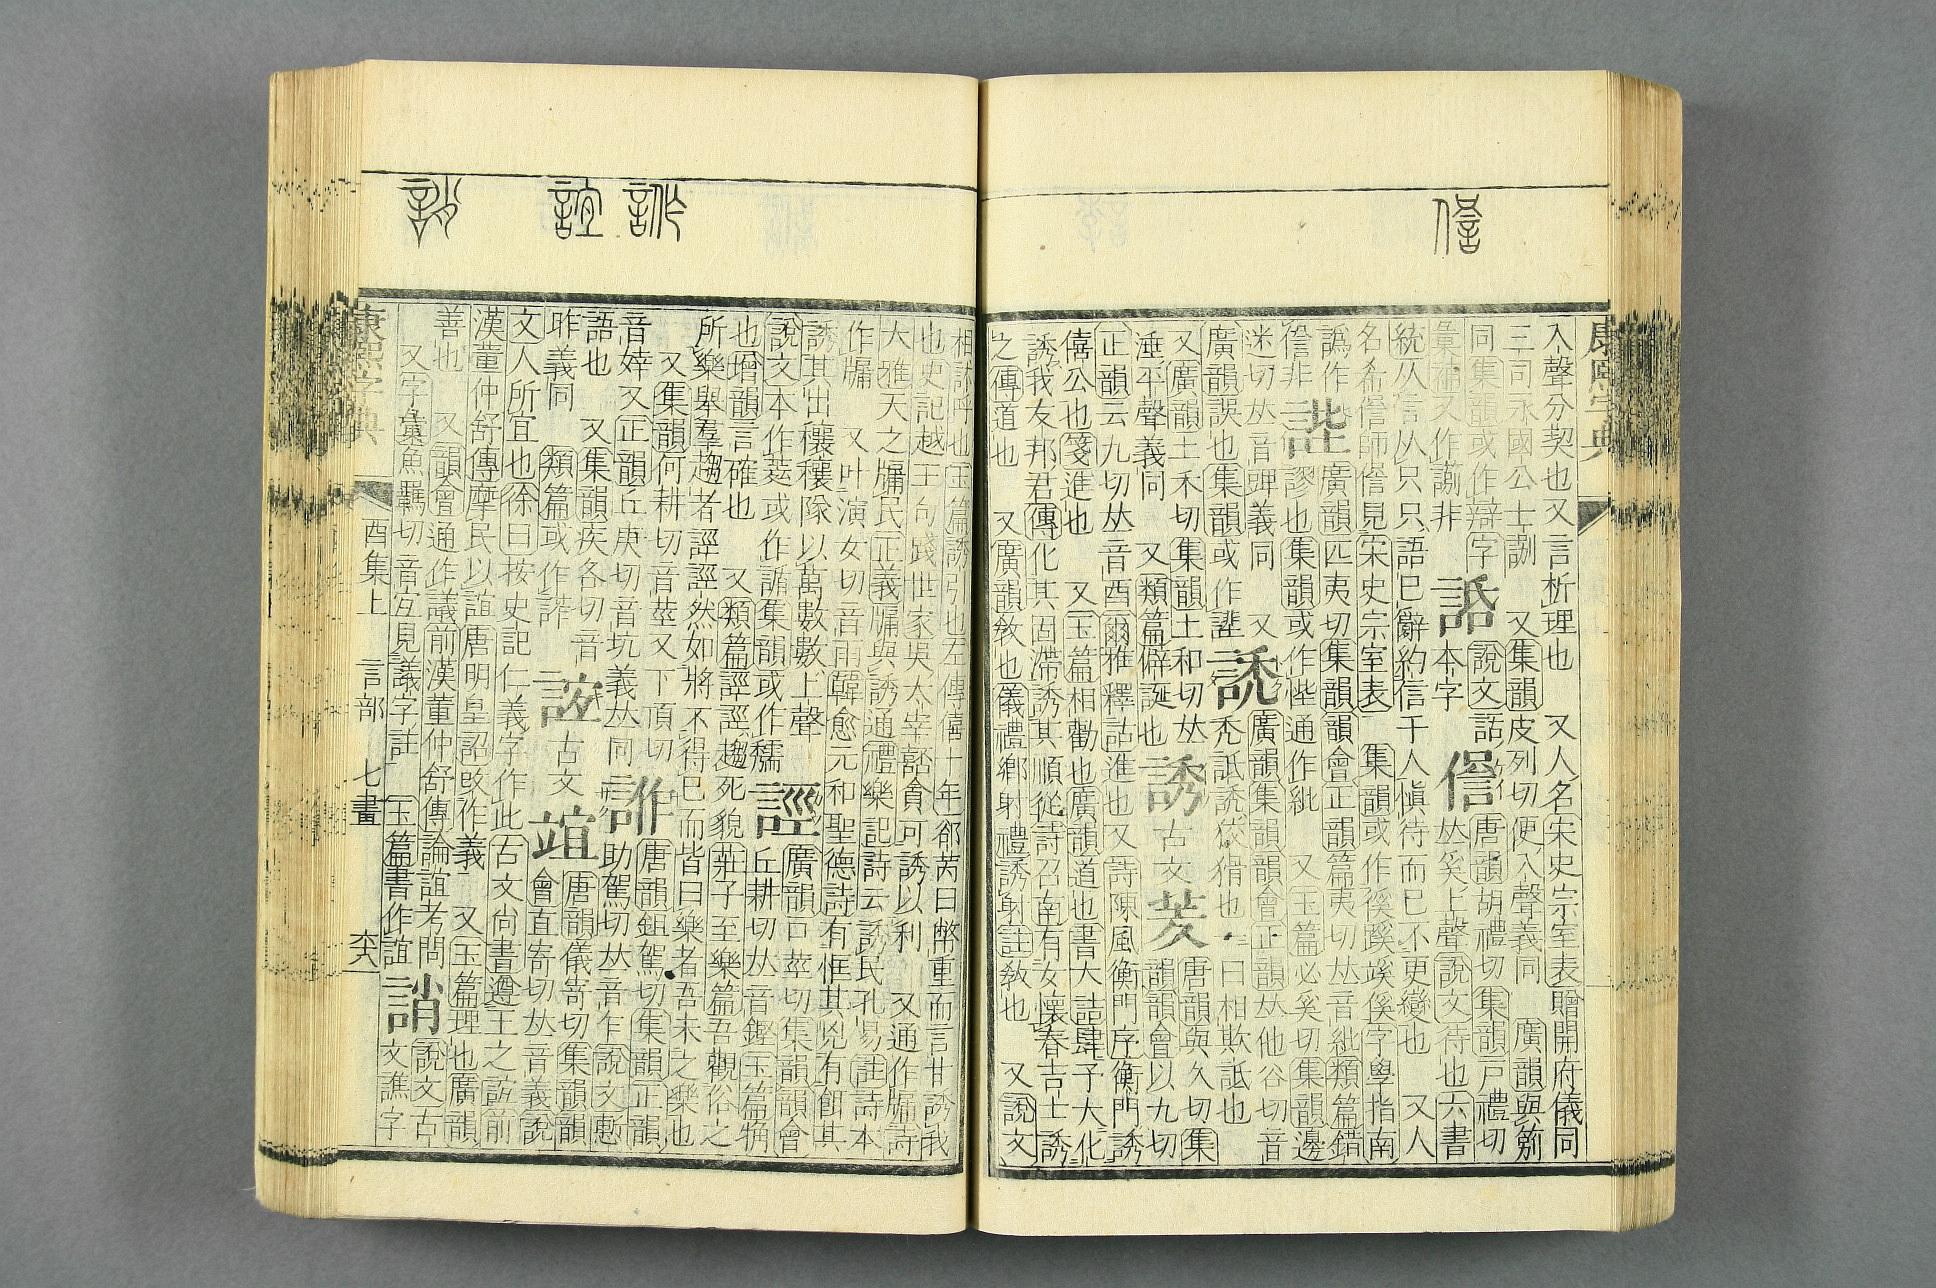 康熙字典
入聲分契也又言析理也　又人名宋史宗室表贈開府儀同
三司永國公士　又集韻皮列切便入聲義同　廣韻與
同集韻或作辯字　說文話　唐韻胡禮切集韻戶禮切
彙補又作　非　本字　𠀤奚上聲說文待也六書
統从信从只只語巳辭約信于人愼待而巳不更變也　又人
名希　師　見宋史宗室表　集韻或作徯蹊　傒字學指南
譌作　廣韻匹夷切集韻韻會正韻篇夷切𠀤音紕類篇錯
非　謬也集韻或作悂通作紕　又玉篇必奚切集韻邊
迷切𠀤音　義同　又廣韻集韻韻會正韻𠀤他谷切音
廣韻誤也集韻或作　誘　禿詆誘狡猾也一曰相欺詆也
又廣韻土禾切集韻土和切𠀤　唐韻與久切集
涶平聲義同　又類篇僻誕也　誘　古文　韻韻會以九切
正韻云九切𠀤音酉爾雅釋詁進也又詩陳風衡門序衡門誘
僖公也箋進也　又玉篇相勸也廣韻道也書大誥肆予大化
誘我友邦君傳化其固滯誘其順從詩召南有女懷春吉士誘
之傳道也　又廣韻敎也儀禮鄕射禮誘射註敎也　又說文
相訹呼也玉篇誘引也左傳僖十年郤芮曰幣重而言甘誘我
也史記越王句踐世家吳太宰嚭貪可誘以利　又通作牖詩
大雅天之牖民正義牖與誘通禮樂記詩云誘民孔易註詩本
作牖　又叶演女切音雨韓愈元和聖德詩有恇其兇有餌其
誘其出穰穰隊以萬數數上聲　廣韻口莖切集韻韻會
說文本作羑或作　集韻或作　誙　丘耕切𠀤音鏗玉篇𧥣
也增韻言確也　又類篇誙誙趨死貌莊子至樂篇吾觀俗之
所樂舉羣趨者誙誙然如將不得巳而皆曰樂者吾未之樂也
又集韻何耕切音莖又下頂切　唐韻鉏駕切集韻正韻
音婞又正韻丘庚切音坑義𠀤同　助駕切𠀤音乍說文慙
語也　又集韻疾各切音　唐韻儀寄切集韻韻
昨義同　類篇或作　古文　誼　會直寄切𠀤音義說
文人所宜也徐曰按史記仁義字作此古文尚書遵王之誼前
漢董仲舒傳摩民以誼唐明皇詔改作義　又玉篇理也廣韻
善也　又韻會通作議前漢董仲舒傳論誼考問　說文古
又字彙魚羈切音宜見議字註　玉篇書作誼　誚　文譙字
康熙字典　酉集上　言部　七畫